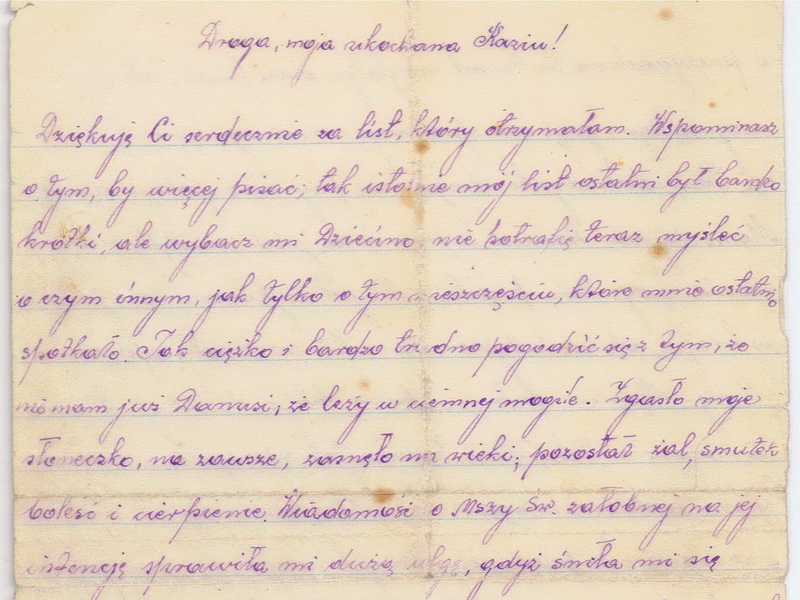 Droga, moja ukochana Kaziu!
Dziękuję Ci serdecznie za list, który otrzymałam. Wspominasz
o tym, by więcej pisać; tak istotnie mój list ostatni był bardzo
krótki, ale wybacz mi Dziecino, nie potrafię teraz myśleć
o czym innym, jak tylko o tym nieszczęściu, które mnie ostatnio
spotkało. Tak ciężko i bardzo trudno pogodzić się z tym, że
nie mam już Danusi; że leży w ciemnej mogile. Zgasło moje
słoneczko, na zawsze, zasnęło na wieki; pozostał żal, smutek
boleść i cierpienie. Wiadomość o Mszy Św. żałobnej na jej
intencję sprawiła mi dużą ulgę, gdyż śniła mi się